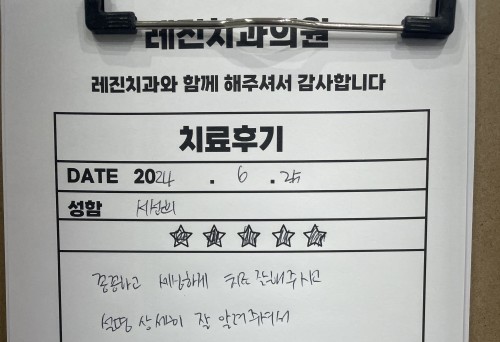 레진치과의원
레진치과와 함께 해주셔서 감사합니다
치료후기
DATE 2024 . 6 . 25
성함
꼼꼼하고 세심하게 치료 해주시고
설명 상세히 잘 알려주셔서